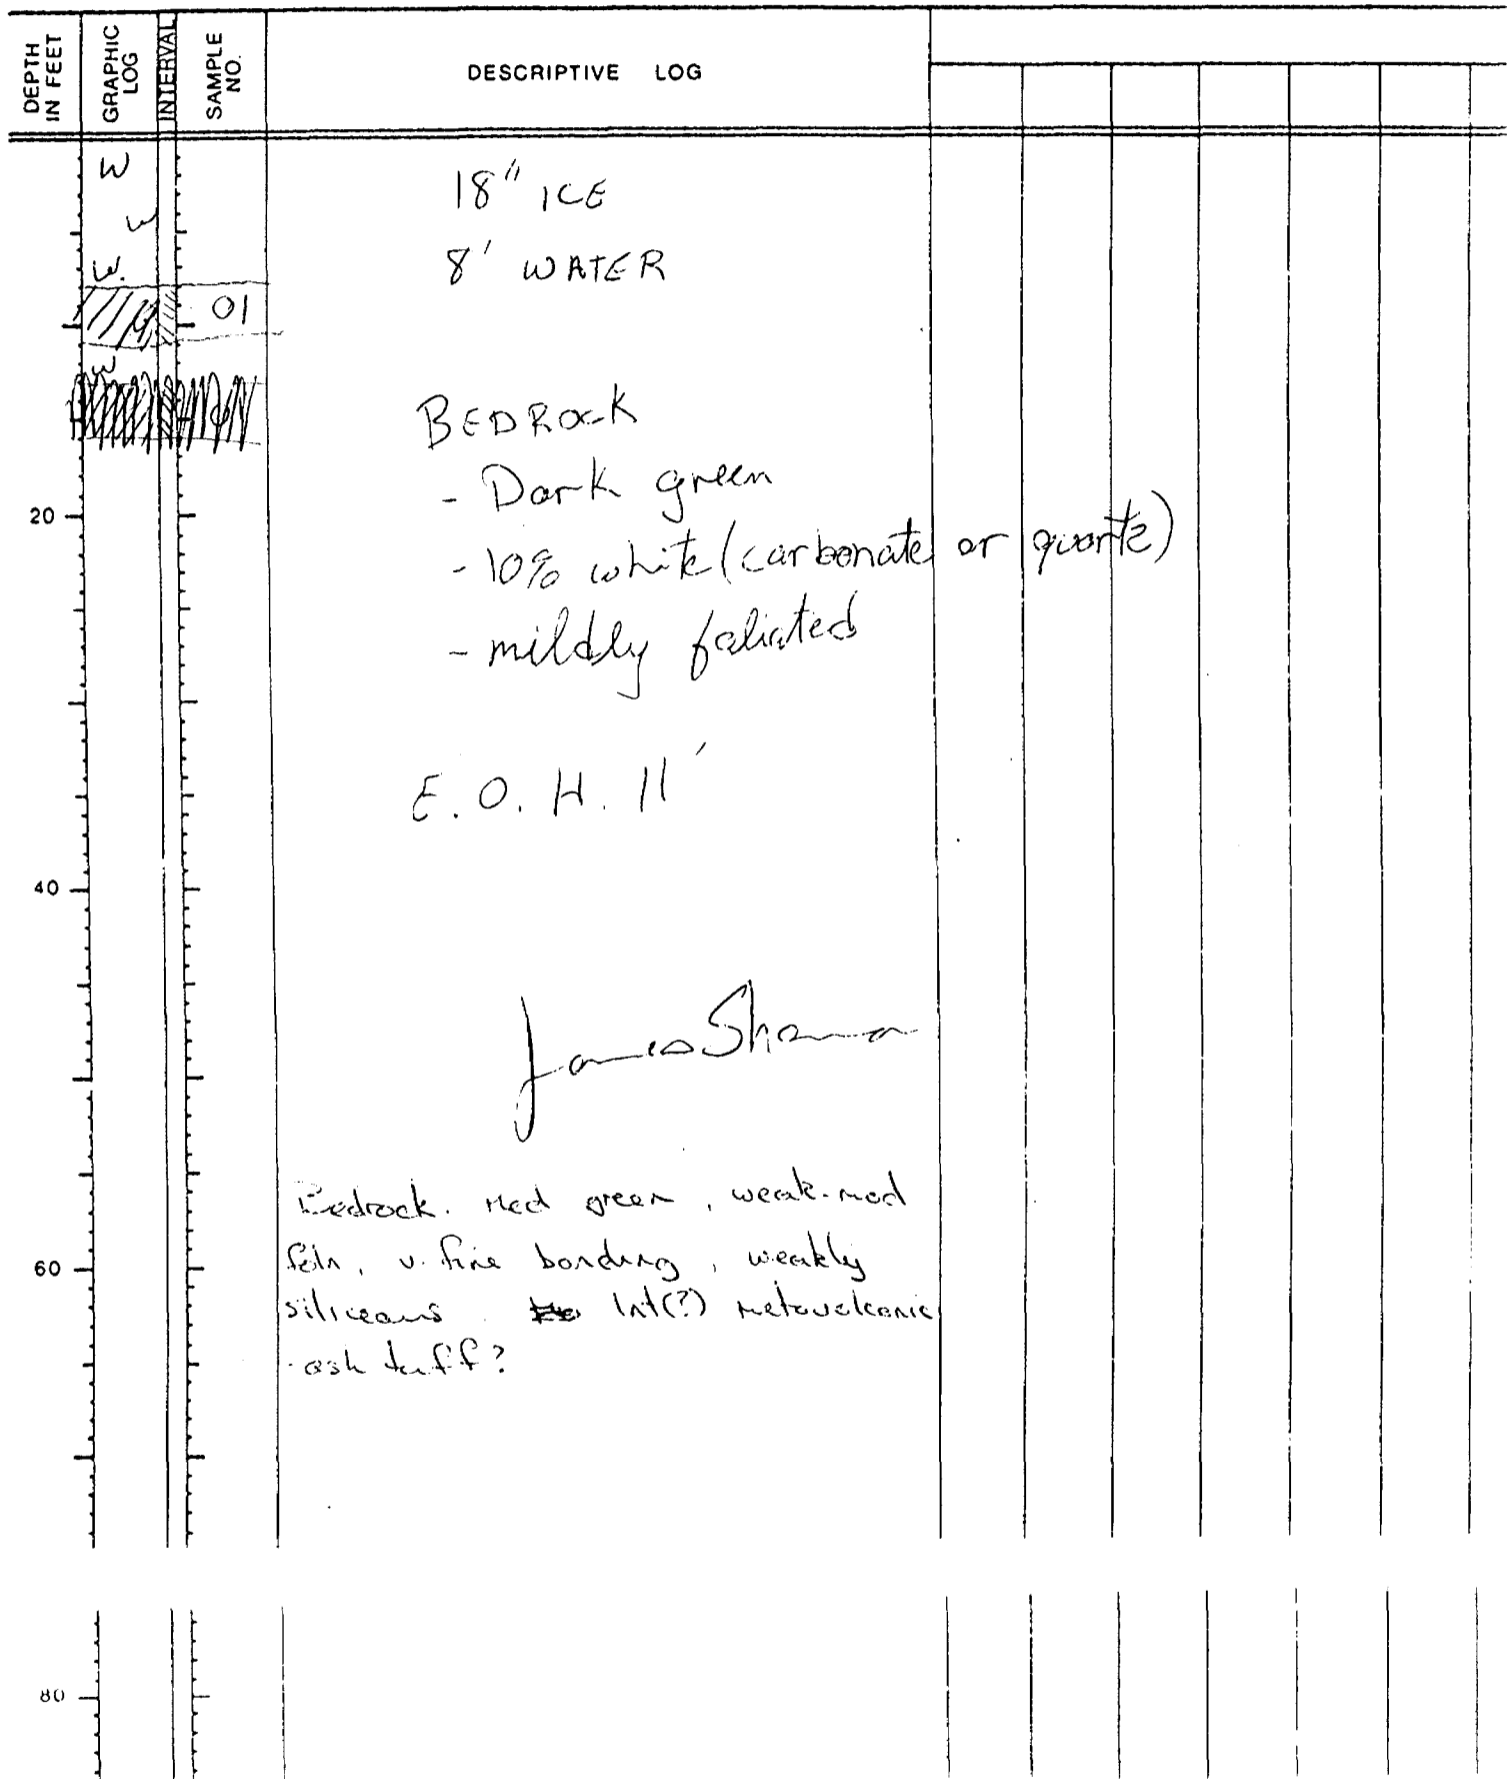 DEPTH IN FEET
GRAPHIC LOG
INTERVAL
SAMPLE NO.
DESCRIPTIVE LOG
W
18" ICE
W
8' WATER
W.
01
W
BEDROCK
- Dark green
20
- 10% white (carbonate or quartz)
- mildly foliated
E.O.H. 11'
40
James
Bedrock. Med green, weak-mod
foln, v. fine banding, weakly
60
siliceous. Int(?) metavolcanic
-ash tuff?
80